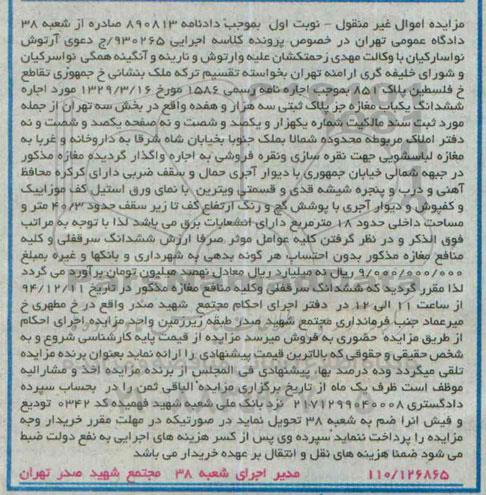 مزایده اموال غیر منقول - نوبت اول بموجب دادنامه ۸۹۰۸۱۳ صادره از شعبه ۳۸
دادگاه عمومی تهران در خصوص پرونده کلاسه اجرایی ۹۳۰۲۶۵/ج دعوی آرتوش
نواسارکیان با وکالت مهدی زحمتکشان علیه وارتوش و نارینه و آنگینه همگی نواسرکیان
و شورای خلیفه گری ارامنه تهران بخواسته تقسیم ترکه ملک بنشانی خ جمهوری تقاطع
خ فلسطین پلاک ۸۵۱ بموجب اجاره نامه رسمی ۱۵۸۶ مورخ ۱۳۲۹/۳/۱۶ مورد اجاره
ششدانگ یکباب مغازه جز پلاک ثبتی سه هزار و هفده واقع در بخش سه تهران از جمله
مورد ثبت سند مالکیت شماره یکهزار و یکصد و شصت و نه صفحه یکصد و شصت و نه
دفتر املاک مربوطه محدوده شمالا بملک جنوبا بخیابان شاه شرقا به داروخانه و غربا به
مغازه لباسشویی جهت نقره سازی ونقره فروشی به اجاره واگذار گردیده مغازه مذکور
در جبهه شمالی خیابان جمهوری با دیوار آجری حمال و سقف ضربی دارای کرکره محافظ
آهنی و درب و پنجره شیشه قدی و قسمتی ویترین با نمای ورق استیل کف موزاییک
و کفپوش و دیوار آجری با پوشش گچ و رنگ ارتفاع کف تا زیر سقف حدود ۴۰/۳ متر و
مساحت داخلی حدود ۱۸ مترمربع دارای انشعابات برق می باشد لذا با توجه به مراتب
فوق الذکر و در نظر گرفتن کلیه عوامل موثر صرفا ارزش ششدانگ سرقفلی و کلیه
منافع مغازه مذکور بدون احتساب هر گونه بدهی به شهرداری و بانکها و غیره بمبلغ
۹/۰۰۰/۰۰۰/۰۰۰ ریال نه میلیارد ریال معادل نهصد میلیون تومان برآورد می گردد
لذا مقرر گردید که ششدانگ سرقفلی وکلیه منافع مغازه مذکور در تاریخ ۹۴/۱۲/۱۱
از ساعت ۱۱ الی ۱۲ در دفتر اجرای احکام مجتمع شهید صدر واقع در خ مطهری خ
میرعماد جنب فرمانداری مجتمع شهید صدر طبقه زیرزمین واحد مزایده اجرای احکام
از طریق مزایده حضوری به فروش میرسد مزایده از قیمت پایه کارشناسی شروع و به
شخص حقیقی و حقوقی که بالاترین قیمت پیشنهادی را ارائه نماید بعنوان برنده مزایده
تلقی میگردد وده درصد بها پیشنهادی فی المجلس از برنده مزایده اخذ و مشارالیه
موظف است ظرف یک ماه از تاریخ برگزاری مزایده الباقی ثمن را در بحساب سپرده
دادگستری ۲۱۷۱۲۹۹۰۴۰۰۰۸ نزد بانک ملی شعبه شهید فهمیده کد ۰۳۴۲ تودیع
و فیش انرا ضم به شعبه ۳۸ تحویل نماید در صورتیکه در مهلت مقرر خریدار وجه
مزایده را پرداخت ننماید سپرده وی پس از کسر هزینه های اجرایی به نفع دولت ضبط
می شود ضمنا هزینه های نقل و انتقال بر عهده خریدار می باشد
۱۱۰/۱۲۶۸۶۵ مدیر اجرای شعبه ۳۸ مجتمع شهید صدر تهران